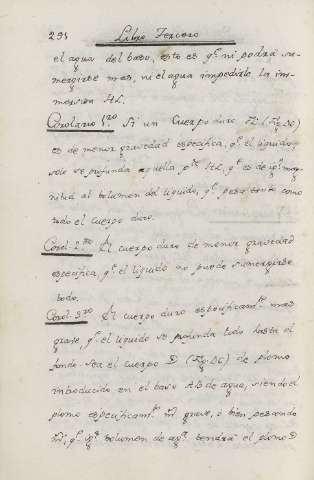 291 Libro Tercero
el agua del baso, esto es q.e ni podrá su-
mergirse mas, ni el agua impedirle la im-
mersion HL.
Corolario 1.ro Si un Cuerpo duro (Fig. 36)
es de menor gravedad especifica, q.e el liquido
solo se profunda aquella p.te HL, q.e es de ig.l mag-
nitud al bolumen del liquido, q.e pesa tanto como
todo el cuerpo duro.
Corol. 2.do El cuerpo duro de menor gravedad
especifica, q.e el liquido no puede sumergirse
todo.
Corol. 3.ro El cuerpo duro especificam.te mas
grave, q.e el liquido se profunda todo hasta el
fondo. Sea el cuerpo D (Fig. 36) de plomo
introducido en el baso AB de agua, siendo el
plomo especificam.te grave, o bien pesando
q.e ig.l bolumen de ag.a tendrá el plomo D